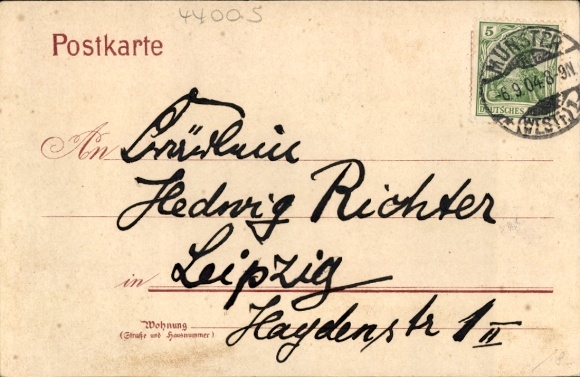 44005
Postkarte
5
MÜNSTER
-6.9.04.8-9N.
(WESTF.)1
DEUTSCHES
An Fräulein
Hedwig Richter
in Leipzig
Wohnung
(Straße und Hausnummer)
Haydenstr 1 II